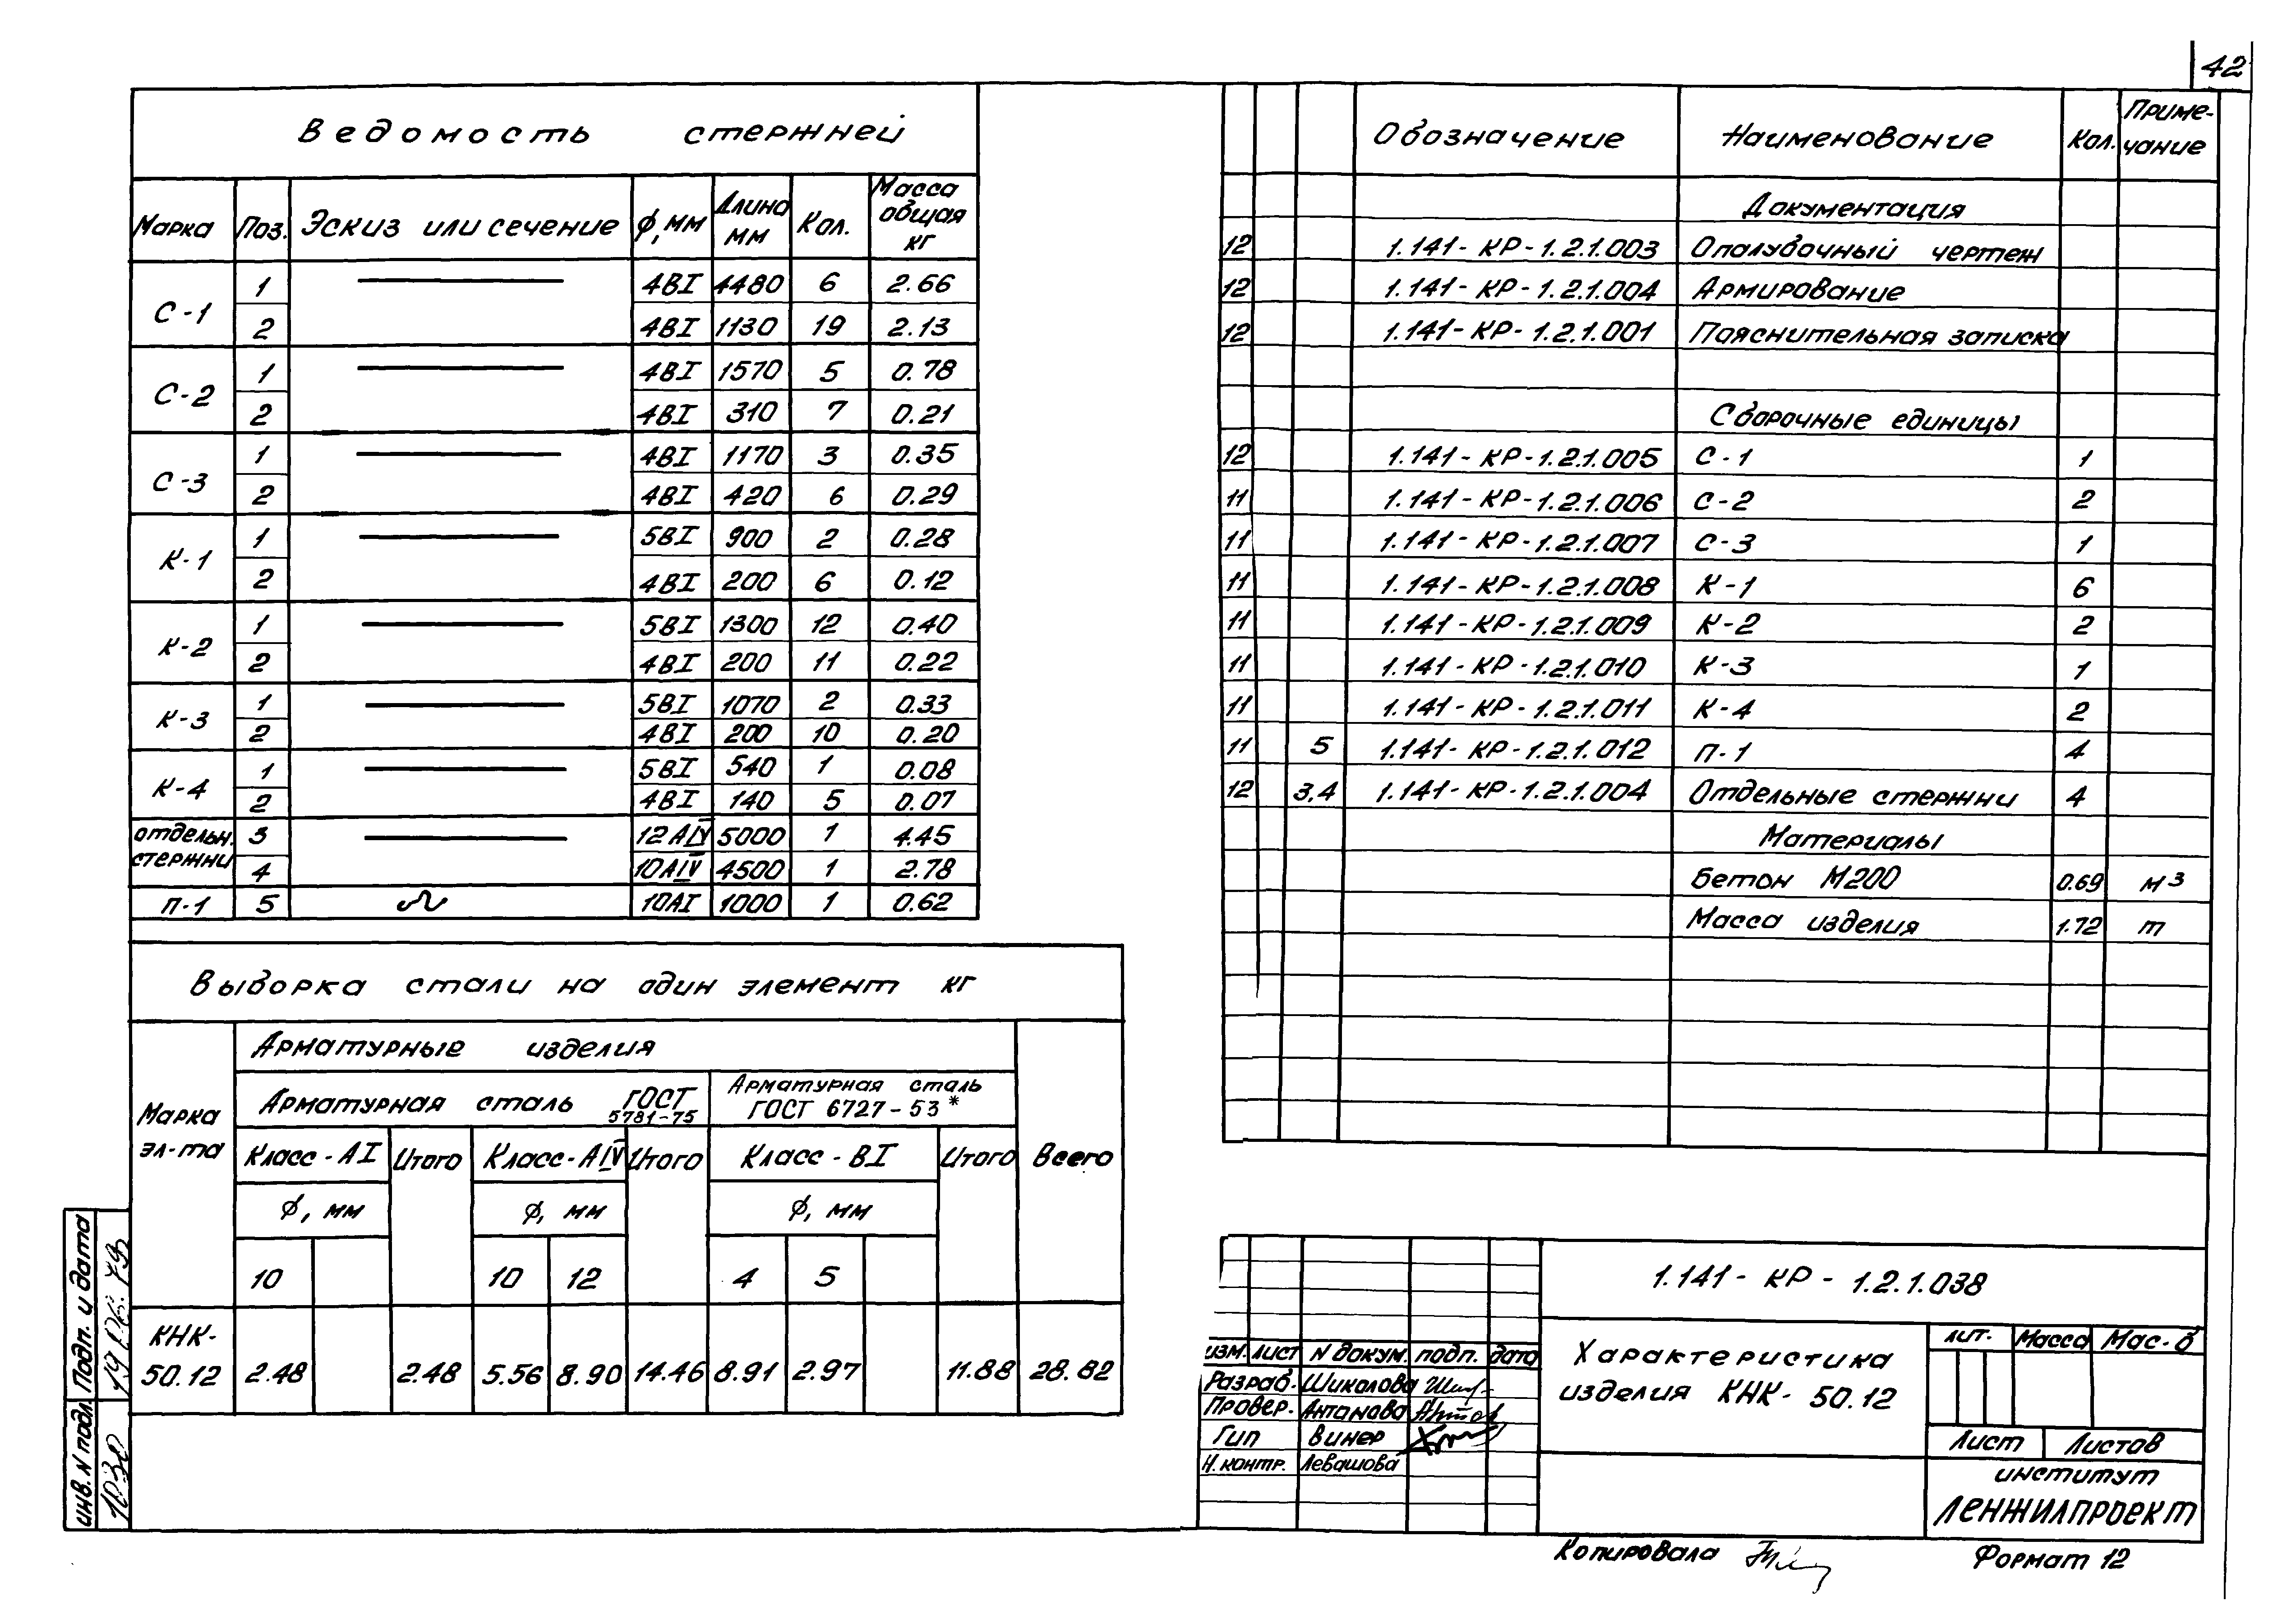 42
Ведомость стержней
Марка Поз. Эскиз или сечение ϕ,мм Длина мм Кол. Масса общая кг
С-1 1 4ВI 4480 6 2.66
2 4ВI 1130 19 2.13
С-2 1 4ВI 1570 5 0.78
2 4ВI 310 7 0.21
С-3 1 4ВI 1170 3 0.35
2 4ВI 420 6 0.29
К-1 1 5ВI 900 2 0.28
2 4ВI 200 6 0.12
К-2 1 5ВI 1300 12 0.40
2 4ВI 200 11 0.22
К-3 1 5ВI 1070 2 0.33
2 4ВI 200 10 0.20
К-4 1 5ВI 540 1 0.08
2 4ВI 140 5 0.07
отдельн. стержни 3 12АIV 5000 1 4.45
4 10АIV 4500 1 2.78
П-1 5 10АI 1000 1 0.62
Выборка стали на один элемент кг
Марка эл-та
Арматурные изделия
Арматурная сталь ГОСТ 5781-75
Арматурная сталь ГОСТ 6727-53*
Класс-АI Итого Класс-АIV Итого Класс-ВI Итого Всего
ϕ, мм ϕ, мм ϕ, мм
10 10 12 4 5
КНК-50.12 2.48 2.48 5.56 8.90 14.46 8.91 2.97 11.88 28.82
Обозначение Наименование Кол. Приме-чание
Документация
12 1.141-КР-1.2.1.003 Опалубочный чертеж
12 1.141-КР-1.2.1.004 Армирование
12 1.141-КР-1.2.1.001 Пояснительная записка
Сборочные единицы
12 1.141-КР-1.2.1.005 С-1 1
11 1.141-КР-1.2.1.006 С-2 2
11 1.141-КР-1.2.1.007 С-3 1
11 1.141-КР-1.2.1.008 К-1 6
11 1.141-КР-1.2.1.009 К-2 2
11 1.141-КР-1.2.1.010 К-3 1
11 1.141-КР-1.2.1.011 К-4 2
11 5 1.141-КР-1.2.1.012 П-1 4
12 3,4 1.141-КР-1.2.1.004 Отдельные стержни 4
Материалы
бетон М200 0.69 м³
Масса изделия 1.72 т
1.141-КР-1.2.1.038
Характеристика
изделия КНК-50.12
Лит. Масса Мас-б
Лист Листов
институт
ЛЕНЖИЛПРОЕКТ
изм. лист N докум. подп. дата
Разраб. Шиколова
Провер. Антонова
Гип Винер
Н.контр. Левашова
Копировала
Формат 12
инв. N подл. Подп. и дата
1030